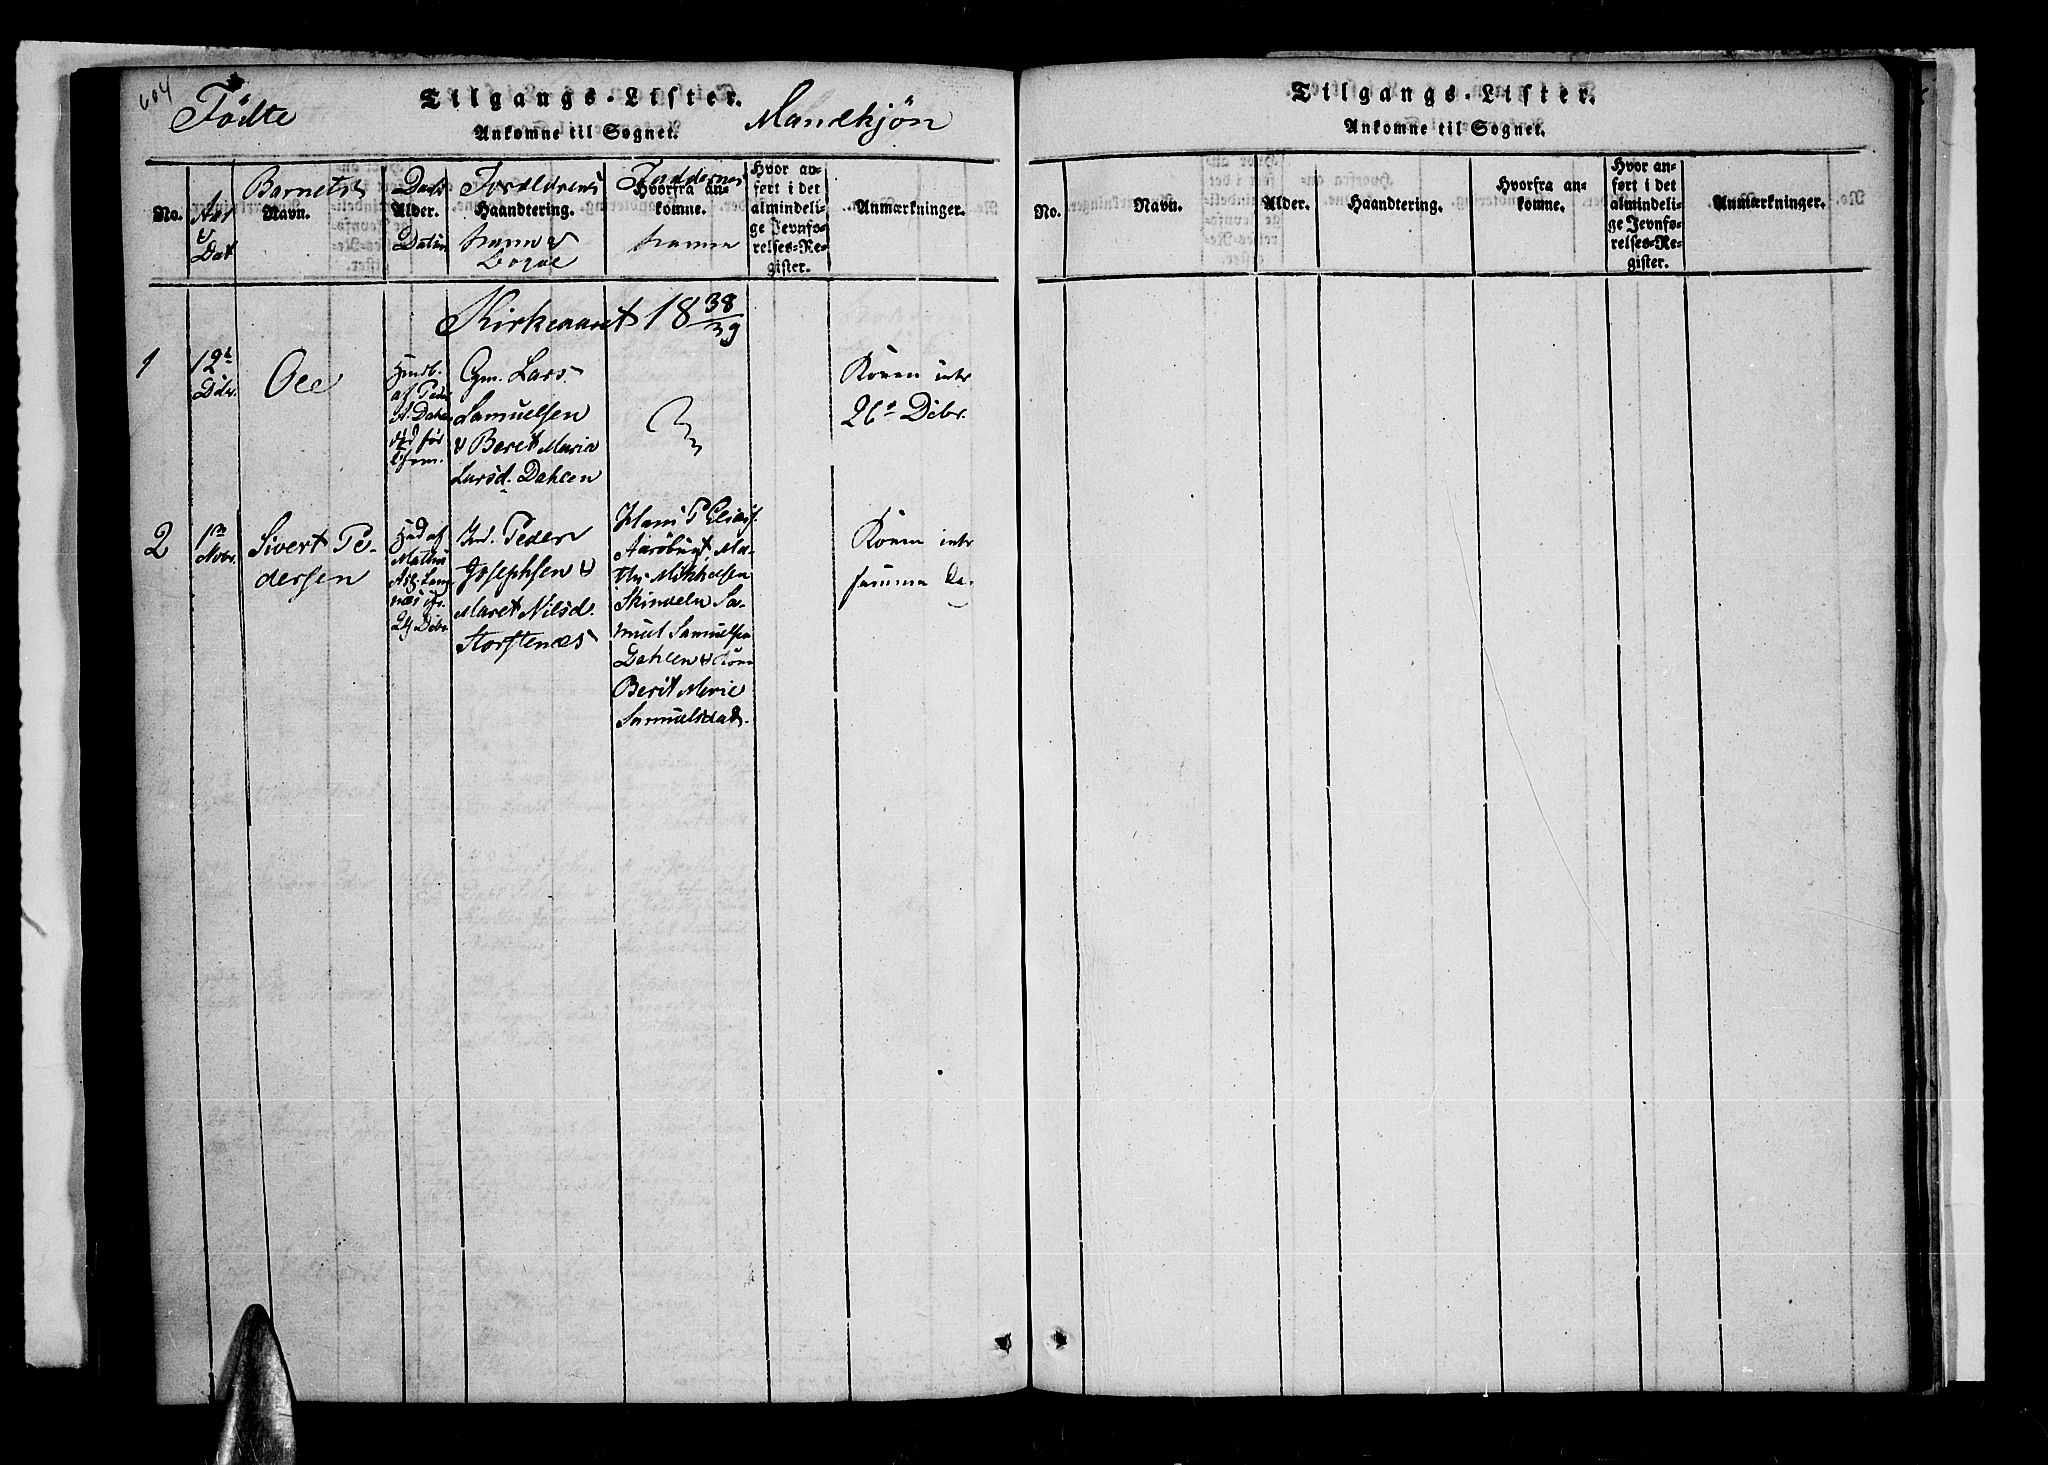 604
Födte
Tilgangs-Lister.
Mandkjøn
Ankomne til Sognet.
No.
Aar
&
Dat
Barnets
Navn.
Daabs
Alder.
Datum
Forældrenes
Haandtering.
Navn &
Bopæl
Faddernes
Hvorfra an-
komne.
Navne
Hvor an-
ført i det
almindeli-
ge Jevnfø-
relses-Re-
gister.
Anmærkninger.
Kirkeaaret 1838/39
1
12te
Dcbr.
Ole
Hmdb.
af Peder
A. Dahlen
død før
Gm. Lars
Samuelsen
& Beret Maria
Larsd. Dahlen
26de Dcbr.
2
1ste
Novbr.
Sivert Pe-
dersen
Hmd af
Mathis
Dcbr
Ind. Peder
Josephsen &
Maret Nilsd.
Storstenæs
Hans P. Eliass.
Ma-
this Mikkelsen
Skindeln Sa-
muel Samuelsen
Dahlen & Kone
Berit Marie
Samuelsdatr.
samme Da-
Tilgangs-Lister.
Ankomne til Sognet.
No.
Navn.
Alder.
Haandtering.
Hvorfra an-
komne.
Hvor an-
ført i det
almindeli-
ge Jevnfø-
relses-Re-
gister.
Anmærkninger.